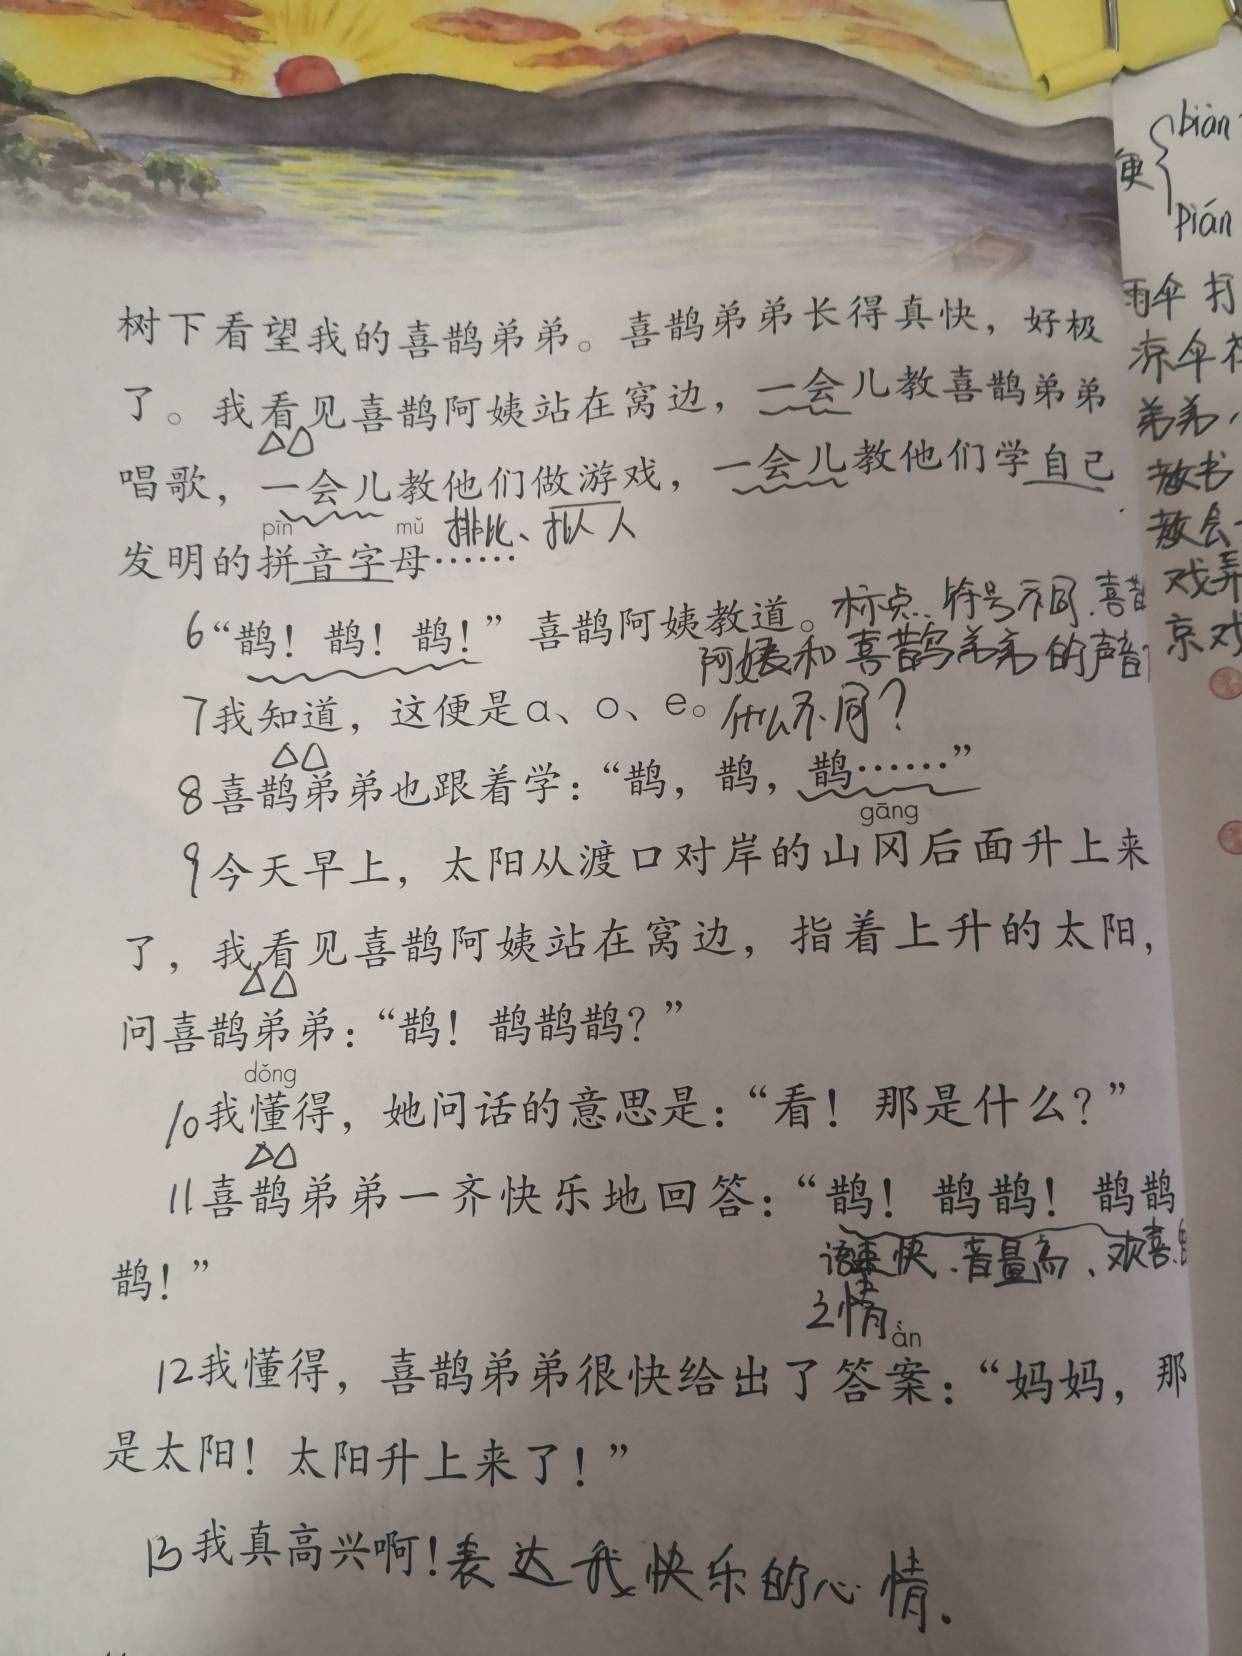 biàn
便
pián
树下看望我的喜鹊弟弟。喜鹊弟弟长得真快，好极
雨伞 打
凉伞
了。我看见喜鹊阿姨站在窝边，一会儿教喜鹊弟弟
弟弟
唱歌，一会儿教他们做游戏，一会儿教他们学自己
教书
pīn mǔ 排比、拟人 人
教会
发明的拼音字母……
戏弄
6“鹊！鹊！鹊！”喜鹊阿姨教道。标点符号不同.喜鹊
京戏
阿姨和喜鹊弟弟的声音
7我知道，这便是ɑ、o、e。什么不同？
8喜鹊弟弟也跟着学：“鹊，鹊，鹊……”
gāng
9今天早上，太阳从渡口对岸的山冈后面升上来
了，我看见喜鹊阿姨站在窝边，指着上升的太阳，
问喜鹊弟弟：“鹊！鹊鹊鹊？”
dǒng
10我懂得，她问话的意思是：“看！那是什么？”
11喜鹊弟弟一齐快乐地回答：“鹊！鹊鹊！鹊鹊
语速快、音量高、欢喜
鹊！”
之情
àn
12我懂得，喜鹊弟弟很快给出了答案：“妈妈，那
是太阳！太阳升上来了！”
13我真高兴啊！表达我快乐的心情.